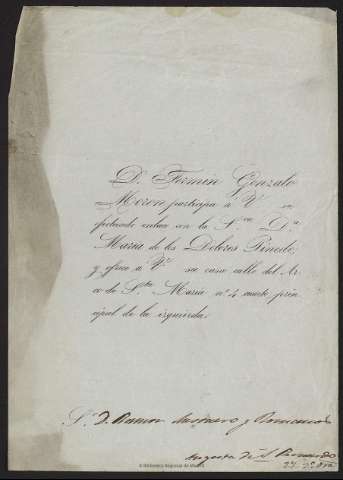 D. Fermin Gonzalo
Moron participa á V. su
efectuado enlace con la S.ra D.a
Maria de los Dolores Pinedo;
y ofrece á V. su casa calle del Ar
co de S.ta Maria n.o 4 cuarto prin
cipal de la izquierda.
S.r D. Ramon Mesonero y Romanos
de S.n Bernardo
Biblioteca Regional de Madrid